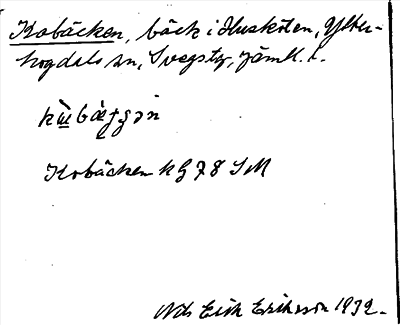 Kobäcken, bäck i Huskölen, Ytter-
hogdals sn, Svegs tg, Jämtl. l.
Kobäcken kG 78 SM
Nils Erik Eriksson 1932.